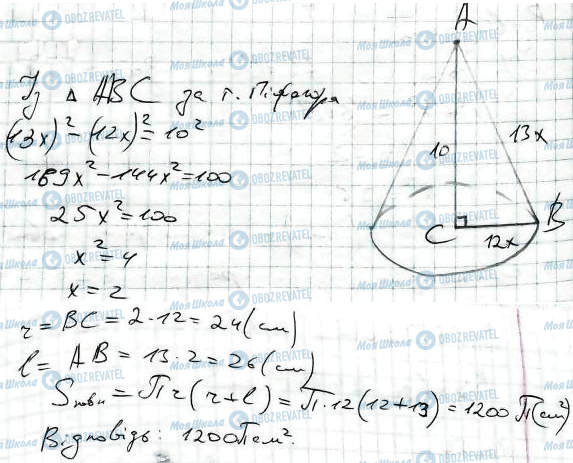 Із Δ ABC за т. Піфагора
(13x)² − (12x)² = 10²
169x² − 144x² = 100
25x² = 100
x² = 4
x = 2
r = BC = 2·12 = 24 (см)
l = AB = 13·2 = 26 (см)
Sповн = Πr(r+l) = Π·12(12+13) = 1200Π(см²)
Відповідь: 1200Πсм².
A
10
13x
C
B
12x
Моя Школа OBOZREVATEL